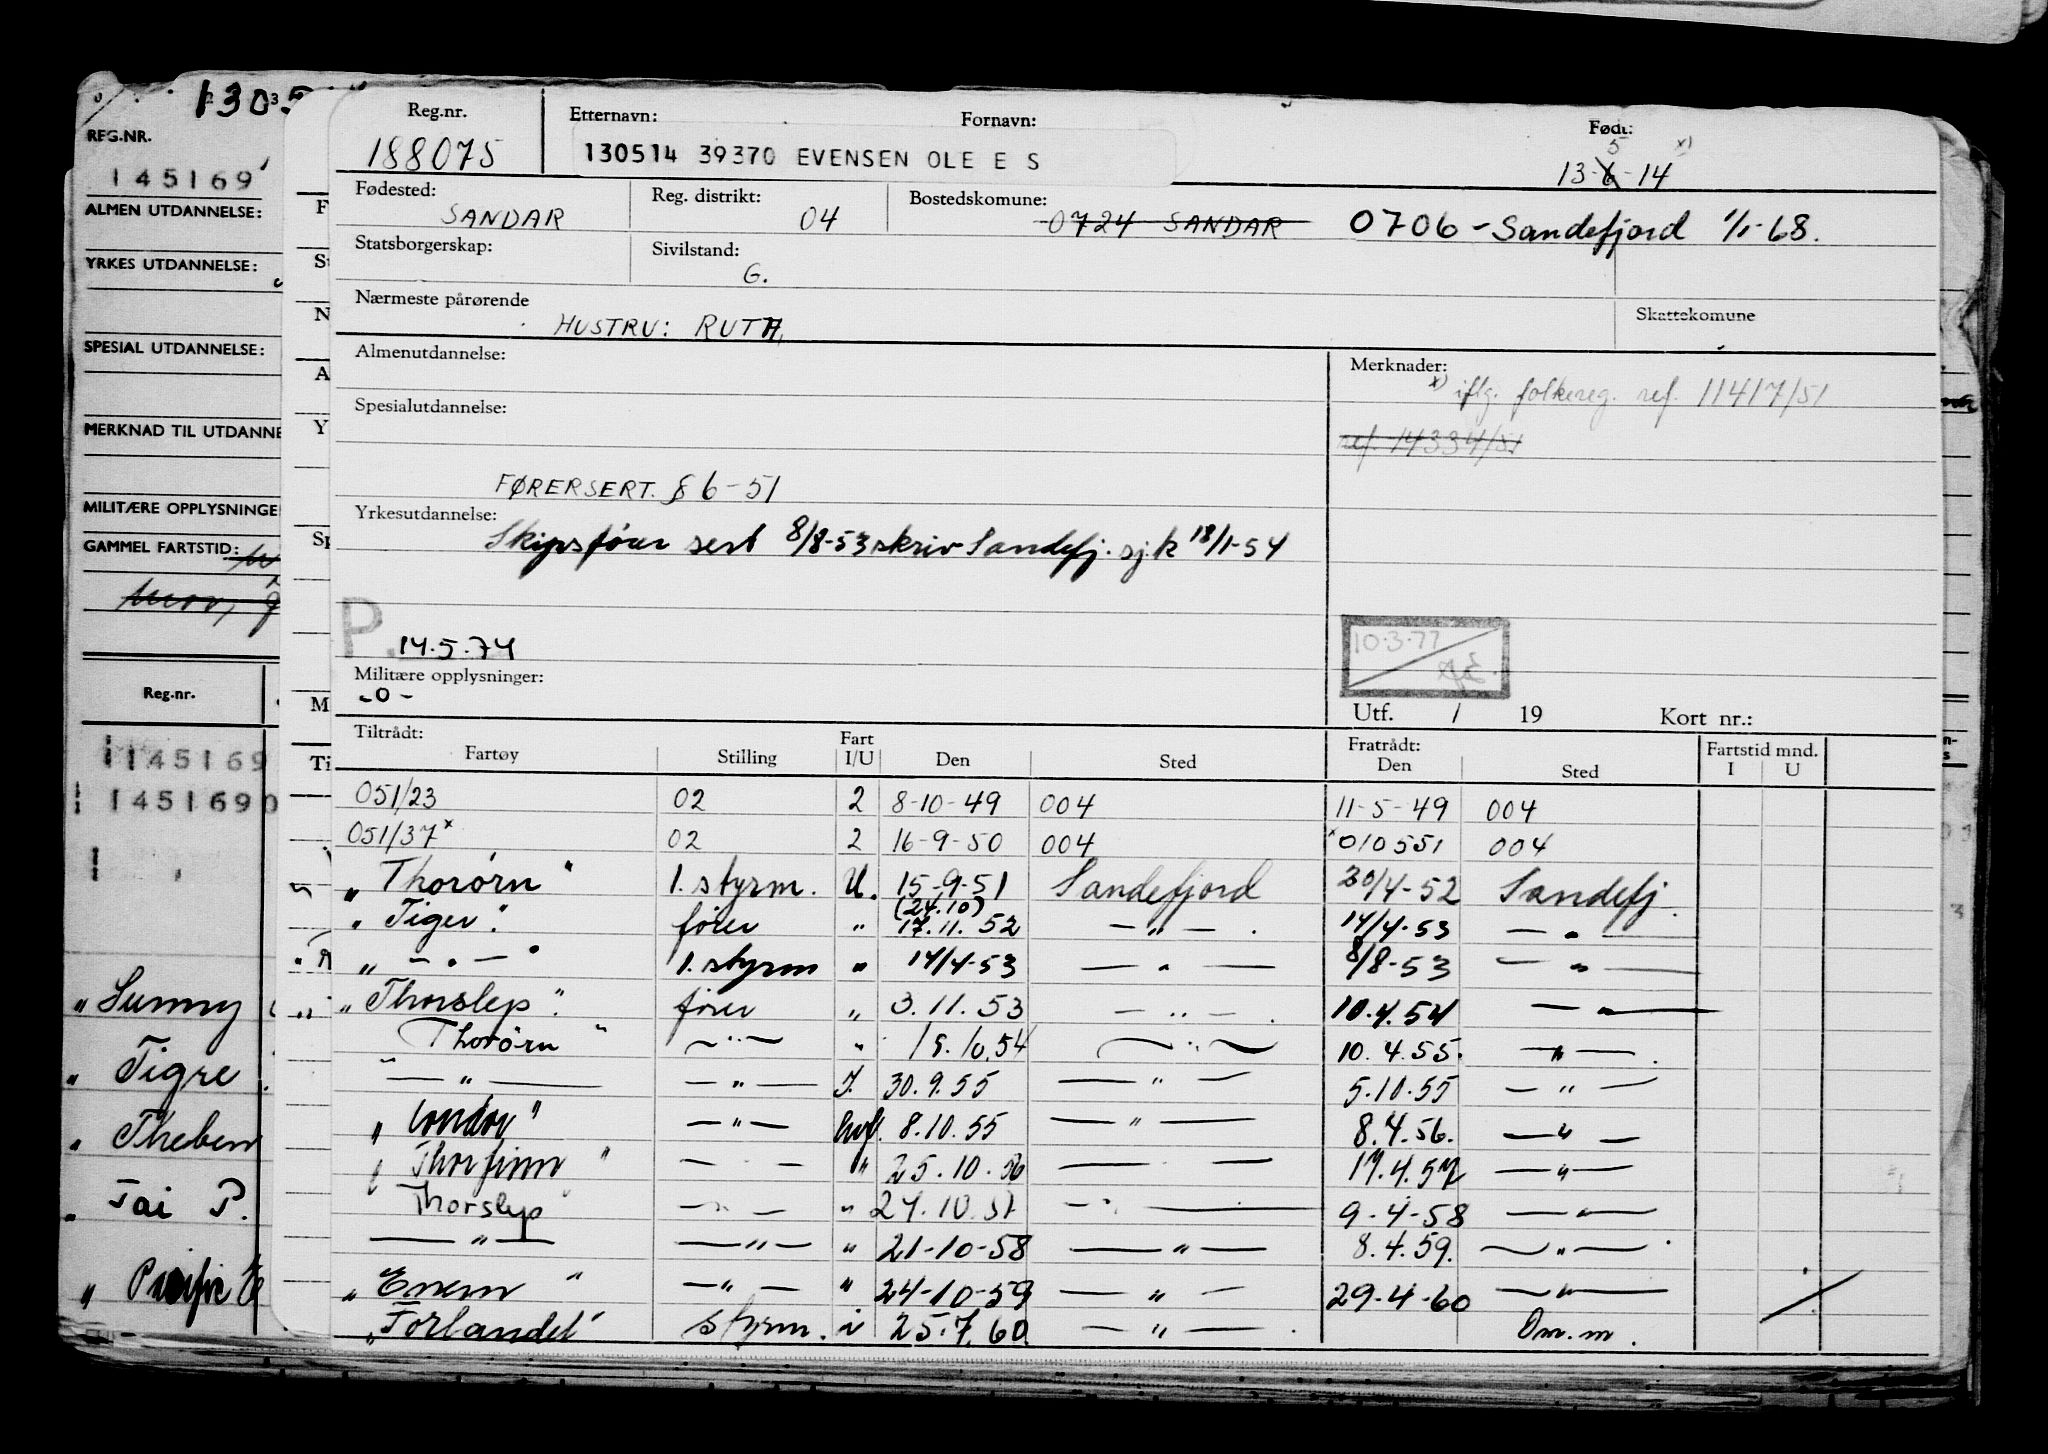 1305
REG.NR.
145169
ALMEN UTDANNELSE:
YRKES UTDANNELSE:
SPESIAL UTDANNELSE:
MERKNAD TIL UTDANNE
MILITÆRE OPPLYSNINGE
GAMMEL FARTSTID:
Reg.nr.
145169
145169
"Sunny
"Tigre
"Theben
"Tai P.
"Pacific
Reg.nr. Etternavn: Fornavn: Født:
188075 130514 39370 EVENSEN OLE E S 13-6-14 5 x)
Fødested: Reg. distrikt: Bostedskomune:
SANDAR 04 0724 SANDAR 0706-Sandefjord 1/1-68.
Statsborgerskap: Sivilstand:
G.
Nærmeste pårørende Skattekomune
HUSTRU: RUTH,
Almenutdannelse: Merknader:
x) iflg. folkereg. ref. 11417/51
Spesialutdannelse:
ref. 14334/51
FØRERSERT. § 6-51
Yrkesutdannelse:
Skipsfører sert 8/8-53 skriv Sandefj. sj.k 18/1-54
P. 14.5.74
10.3.77
Militære opplysninger:
-0-
Utf. / 19 Kort nr.:
Tiltrådt: Fart Fratrådt: Fartstid mnd.
Fartøy Stilling I/U Den Sted Den Sted I U
051/23 02 2 8-10-49 004 11-5-49 004
051/37x 02 2 16-9-50 004 x010551 004
"Thorørn" 1. styrm. U. 15-9-51 Sandefjord 30/4-52 Sandefj.
(24.10)
"Tiger". fører " 17.11.52 — " — . 14/4-53 — " —
" — " — " 1. styrm " 14/4-53 — " — 8/8-53 — " —
"Thorslep". fører " 3.11.53 — " — . 10.4.54 — " —
"Thorørn" — " — " 15.10.54 — " — 10.4.55. — " — .
— " — — " — I. 30.9.55 — " — 5.10.55 — " —
"Condor" — " — hvf. 8.10.55 — " — 8.4.56. — " —
"Thorfinn" — " — " 25.10.56 — " — 17.4.57 — " —
Thorslep — " — " 24.10.57 — " — 9-4-58 — " —
— " — — " — " 21-10-58 — " — 8.4.59. — " —
"Enern" — " — " 24-10-59 — " — 29-4-60 — " —
"Forlandet" styrm. i 25.7.60. — " — . Om.m.